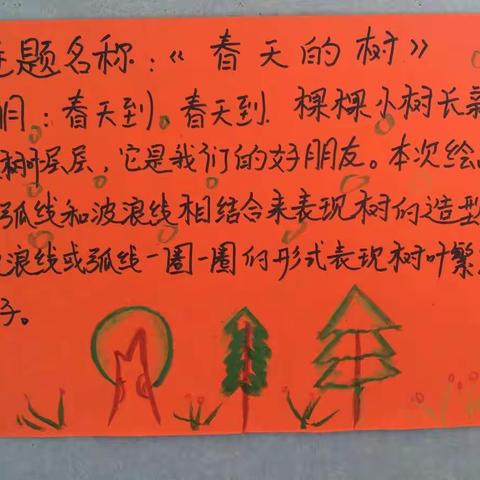 题名称：《春天的树》
：春天到，春天到．棵棵小树长
树叶层层，它是我们的好朋友。本次绘
弧线和波浪线相结合来表现树的造型
浪线或弧线一圈一圈的形式表现树叶繁
子。